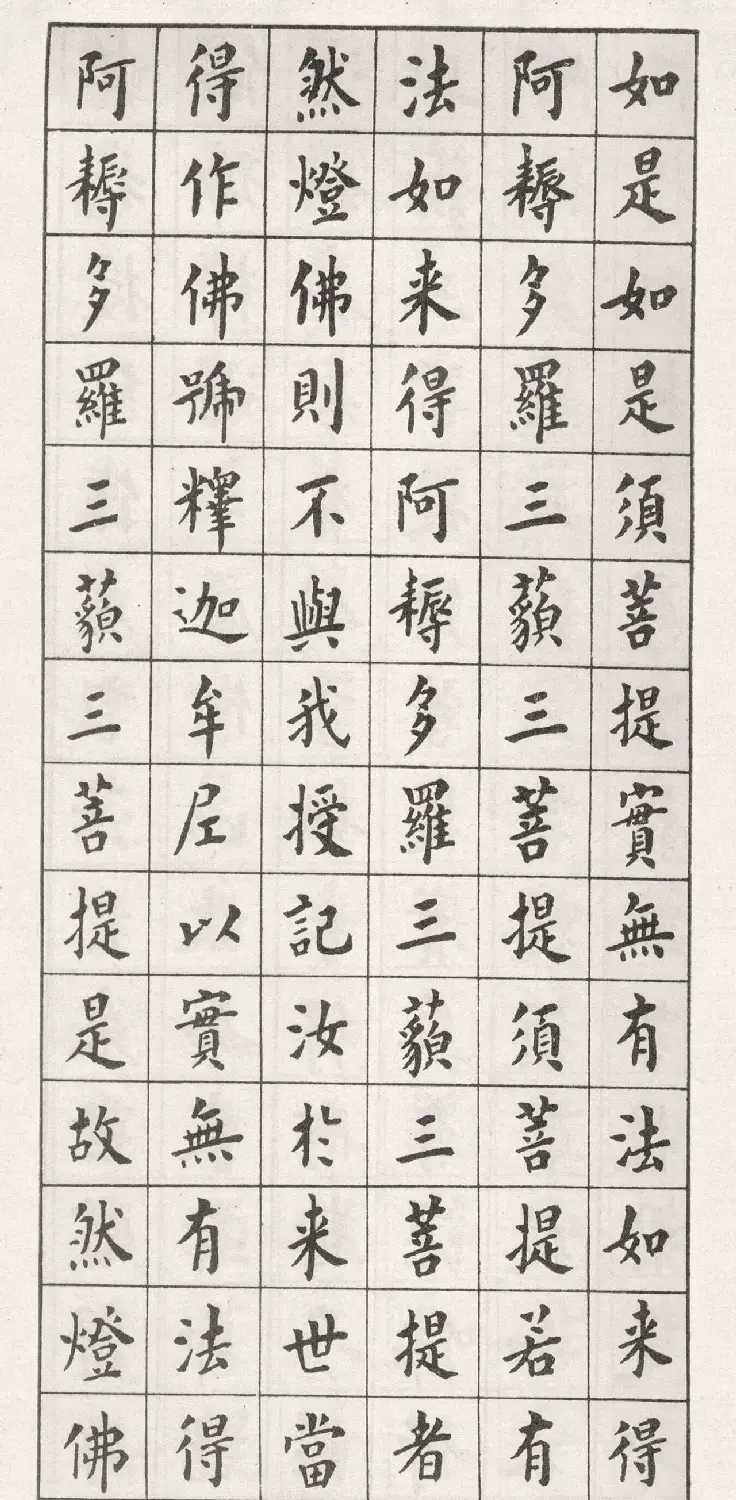 如是如是須菩提實無有法如来得
阿耨多羅三藐三菩提須菩提若有
法如来得阿耨多羅三藐三菩提者
然燈佛則不與我授記汝於来世當
得作佛號釋迦牟尼以實無有法得
阿耨多羅三藐三菩提是故然燈佛